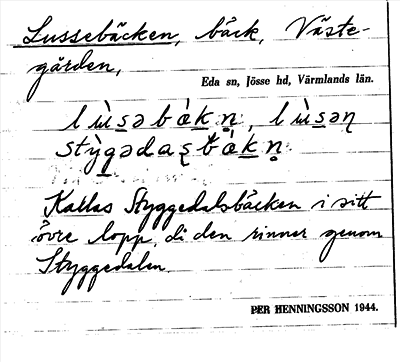 Lussebäcken, bäck, Väste-
gården,
Eda sn, Jösse hd, Värmlands län.
Kallas Styggedalsbäcken i sitt
övre lopp, då den rinner genom
Styggedalen.
PER HENNINGSSON 1944.